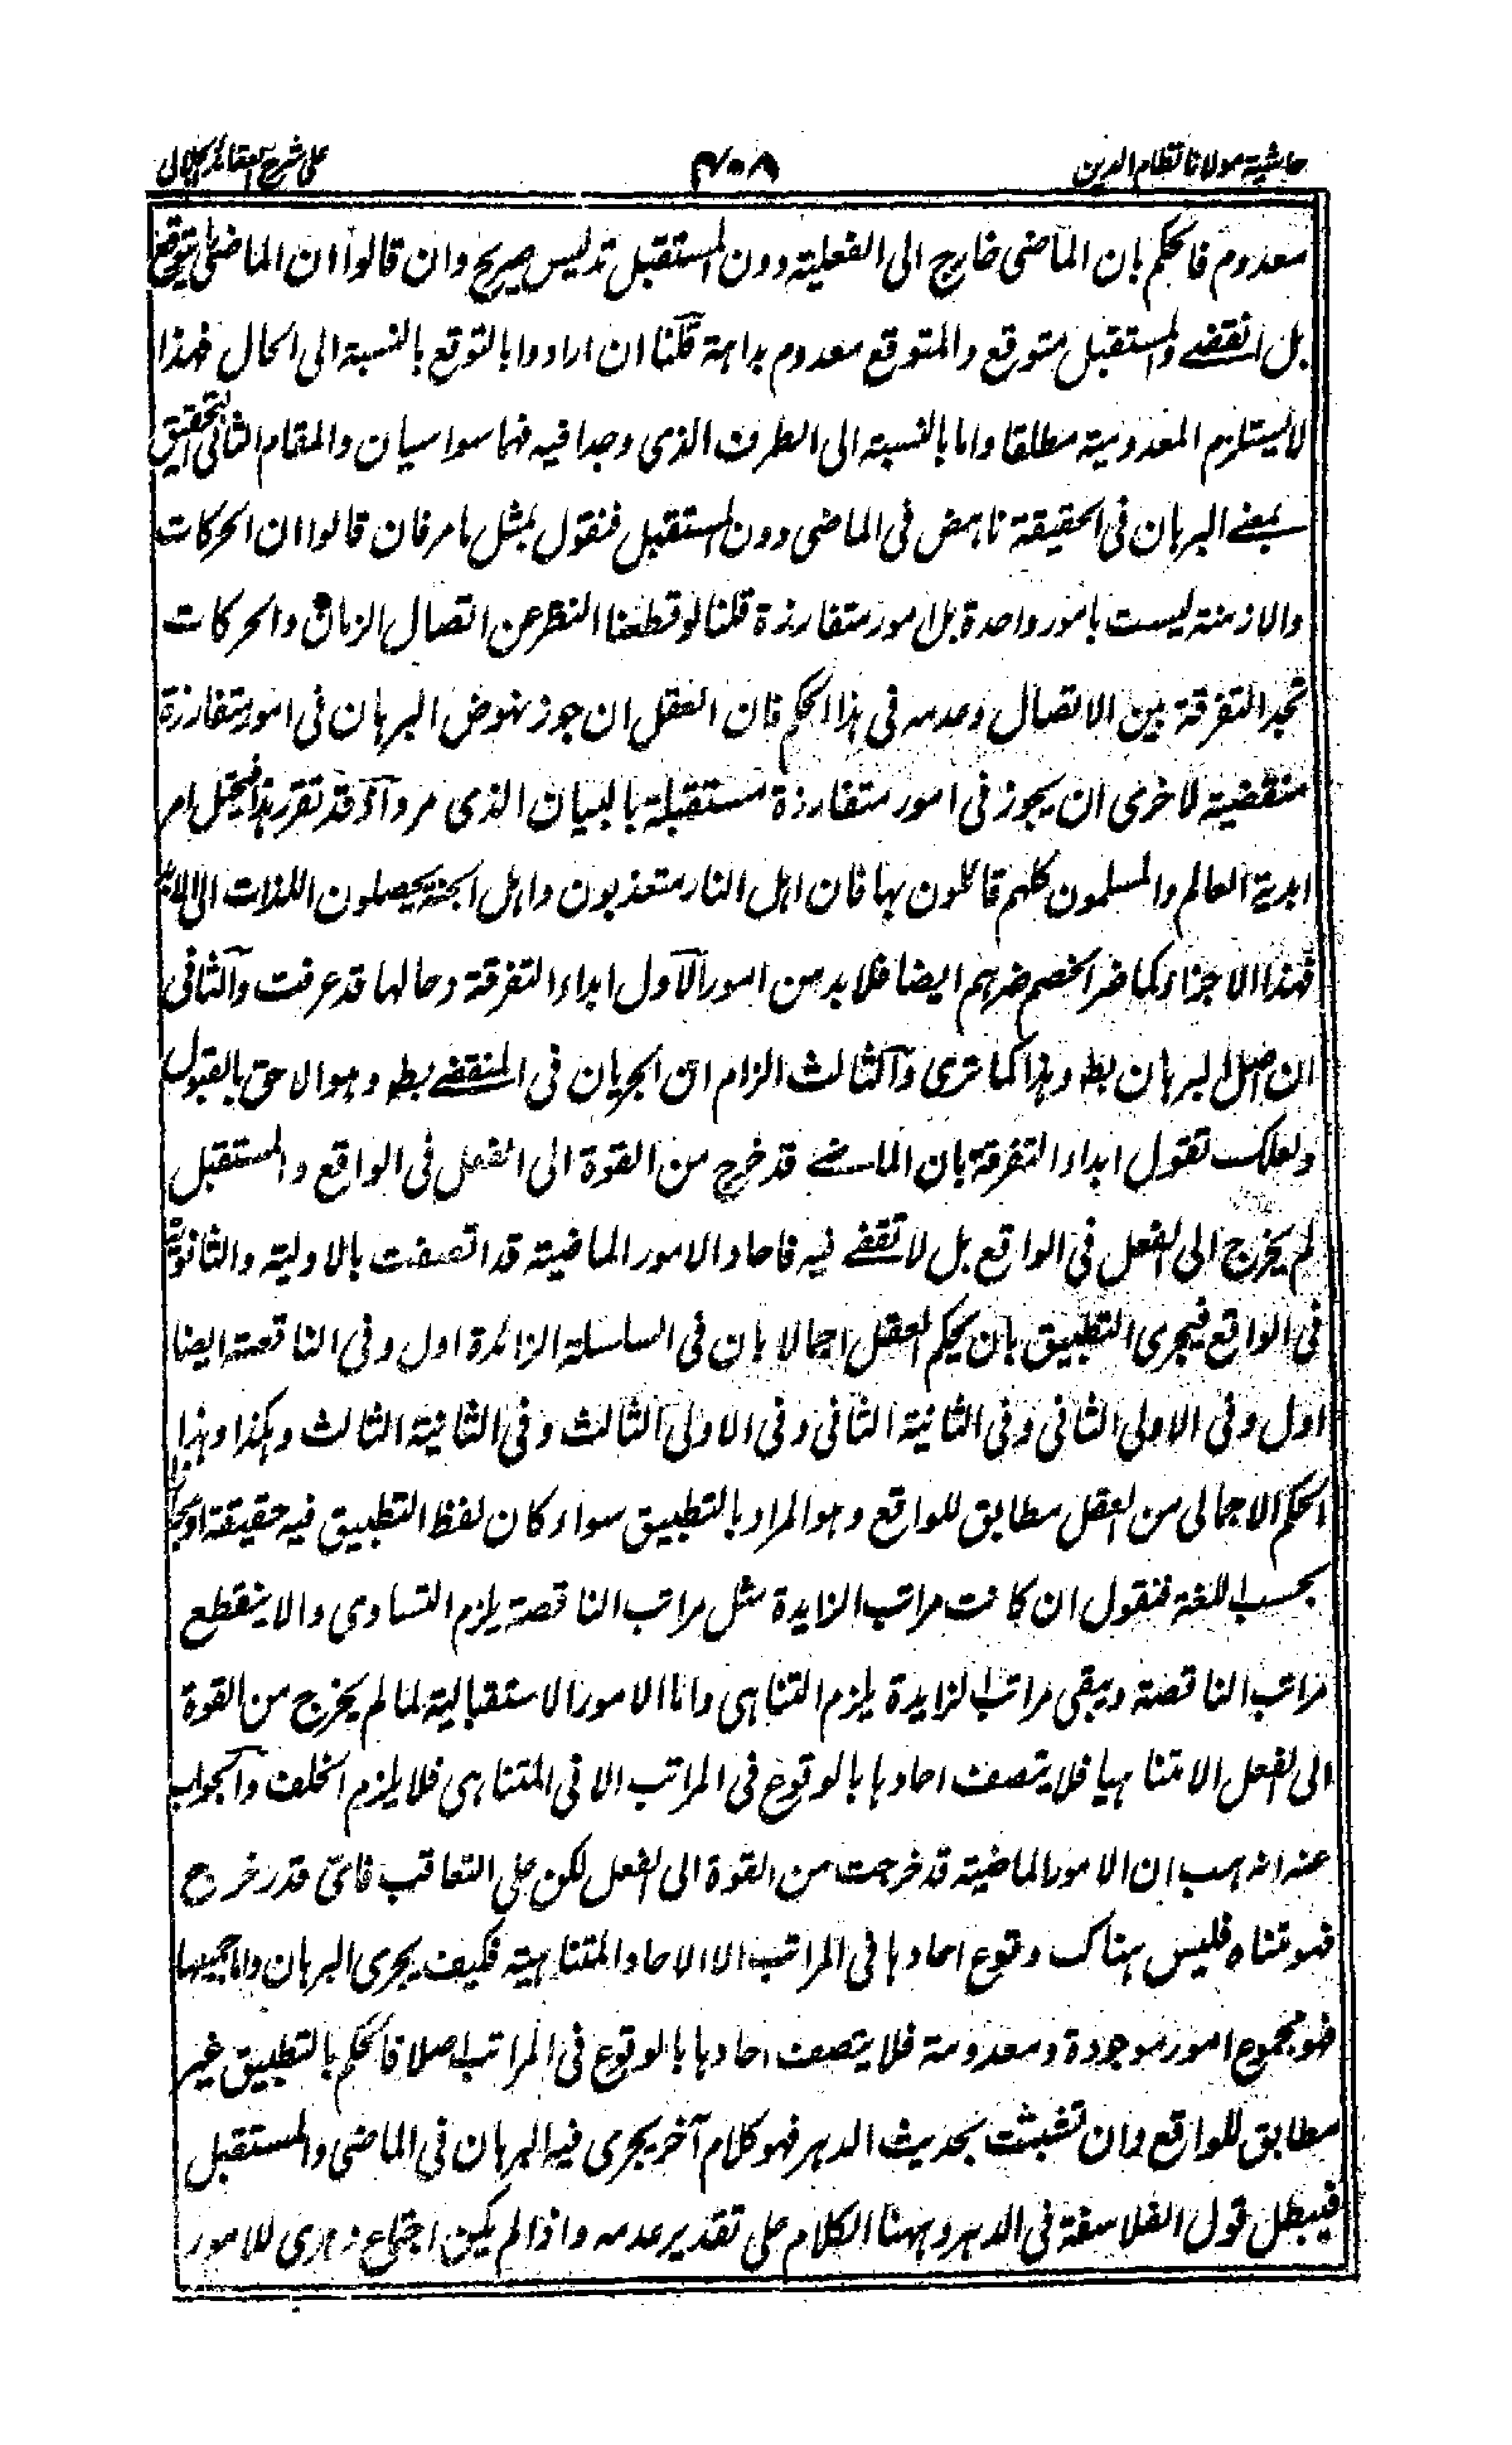 حاشية مولانا نظام الدين
٤٠٨
على شرح العقائد الجلالى
معدوم فالحكم بان الماضى خارج الى الفعلية دون المستقبل تدليس صريح وان قالوا ان الماضى
بل انقضے والمستقبل متوقع والمتوقع معدوم بداهة قلنا ان ارادوا بالتوقع بالنسبة الى الحال فهذا
لا يستلزم المعدومية مطلقا واما بالنسبة الى الطرف الذى وجدا فيه فهما سواسيان والمقام الثانى التحقيق
بمعنے البرهان فى الحقيقة ناهض فى الماضى دون المستقبل فنقول بمثل ما مر فان قالوا ان الحركات
والازمنة ليست بامور واحدة بل امور متفارزة قلنا لو قطعنا النظر عن اتصال الزمان والحركات
نجد التفرقة بين الاتصال وعدمه فى هذا الحكم فان العقل ان جوز نهوض البرهان فى امور متفارزة
منقضية لاخرى ان يجوز فى امور متفارزة مستقبلة بالبيان الذى مر واذ قد تقرر هذا فيختل امر
ابدية العالم والمسلمون كلهم قائلون بها فان اهل النار متعذبون واهل الجنة يحصلون اللذات الى
فهذا الاجزاء كما ضر الخصم ضرهم ايضا فلا بد من امور الاول ابداء التفرقة وحالها قد عرفت والثانى
ان اصل البرهان بط وهذا كما ترى والثالث الزام ان الجريان فى المنقضے بط وهو الاحق بالقبول
ولعلك تقول ابداء التفرقة بان الماضے قد خرج من القوة الى الفعل فى الواقع والمستقبل
لم يخرج الى الفعل فى الواقع بل لا تقضے فيه فاحاد الامور الماضية قد اتصفت بالاولية والثانوية
فى الواقع فيجرى التطبيق بان يحكم العقل اجمالا بان فى السلسلة الزائدة اول وفى الناقصة ايضا
اول وفى الاولى الثانى وفى الثانية الثانى وفى الاولى الثالث وفى الثانية الثالث وهكذا وهذا
الحكم الاجمالى من العقل مطابق للواقع وهو المراد بالتطبيق سواء كان لفظ التطبيق فيه حقيقة
بحسب اللغة فنقول ان كانت مراتب الزايدة مثل مراتب الناقصة يلزم التساوى والا ينقطع
مراتب الناقصة ويبقى مراتب الزايدة يلزم التناهى واما الامور الاستقبالية لما لم يخرج من القوة
الى الفعل الا متناهيا فلا يتصف احادها بالوقوع فى المراتب الا فى المتناهى فلا يلزم الخلف والجواب
عنه انه هب ان الامور الماضية قد خرجت من القوة الى الفعل لكن على التعاقب فاى قدر خرج
فهو متناه فليس هناك وقوع احادها فى المراتب الا الاحاد المتناهية فكيف يجرى البرهان واما جميعها
فهو مجموع امور موجودة ومعدومة فلا يتصف احادها بالوقوع فى المراتب اصلا فالحكم بالتطبيق غير
مطابق للواقع وان تشبثت بحديث الدهر فهو كلام آخر يجرى فيه البرهان فى الماضى والمستقبل
فيبطل قول الفلاسفة فى الدهر وههنا الكلام على تقدير عدمه واذا لم يكن اجتماع دهرى للامور